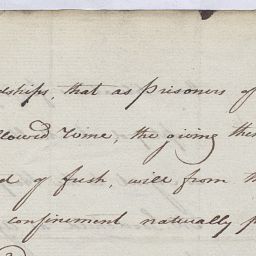 dships that as prisoners of
llowed Wine, the giving the
d of fresh, will from th
confinement naturally p